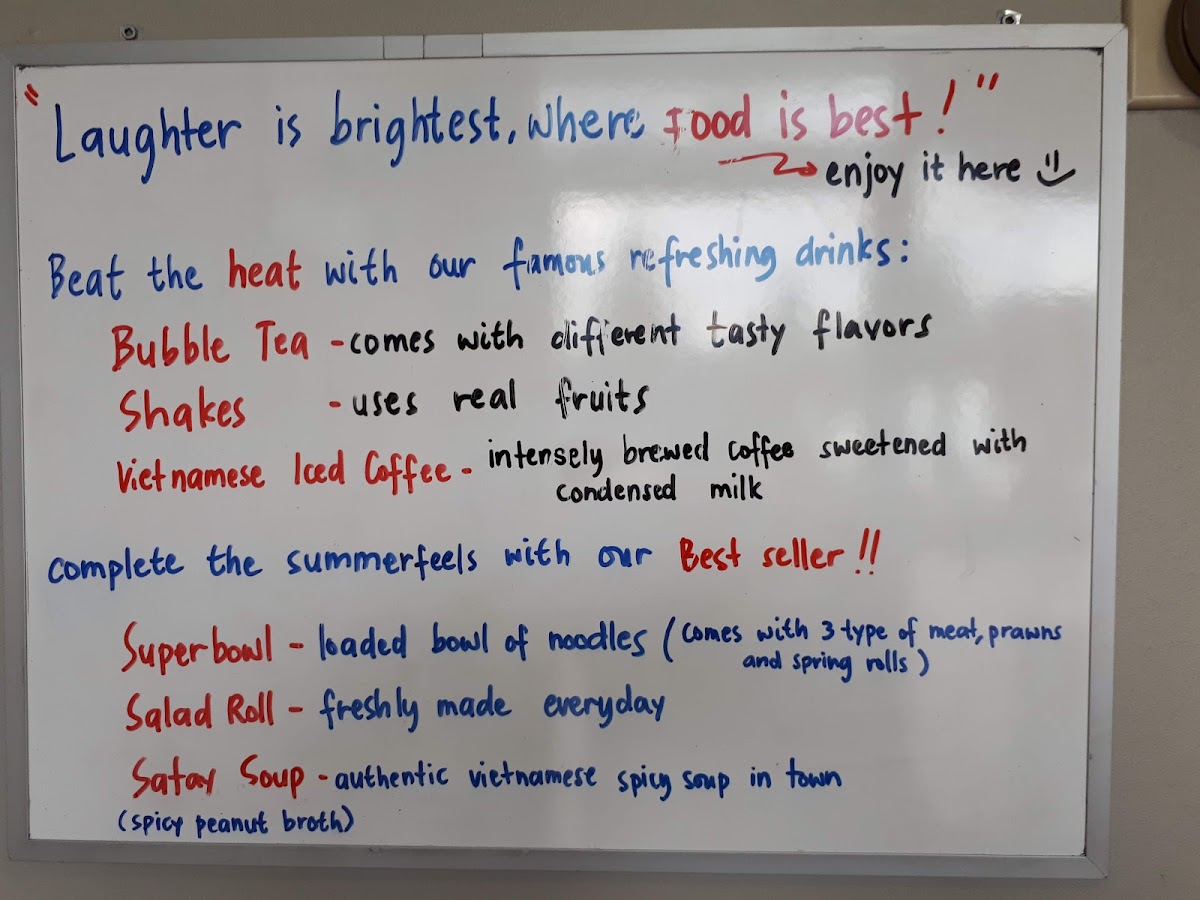 "Laughter is brightest, where Food is best!"
enjoy it here
Beat the heat with our famous refreshing drinks:
Bubble Tea - comes with different tasty flavors
Shakes - uses real fruits
Vietnamese Iced Coffee - intensely brewed coffee sweetened with
condensed milk
complete the summerfeels with our Best seller!!
Superbowl - loaded bowl of noodles (comes with 3 type of meat, prawns
and spring rolls)
Salad Roll - freshly made everyday
Satay Soup - authentic vietnamese spicy soup in town
(spicy peanut broth)